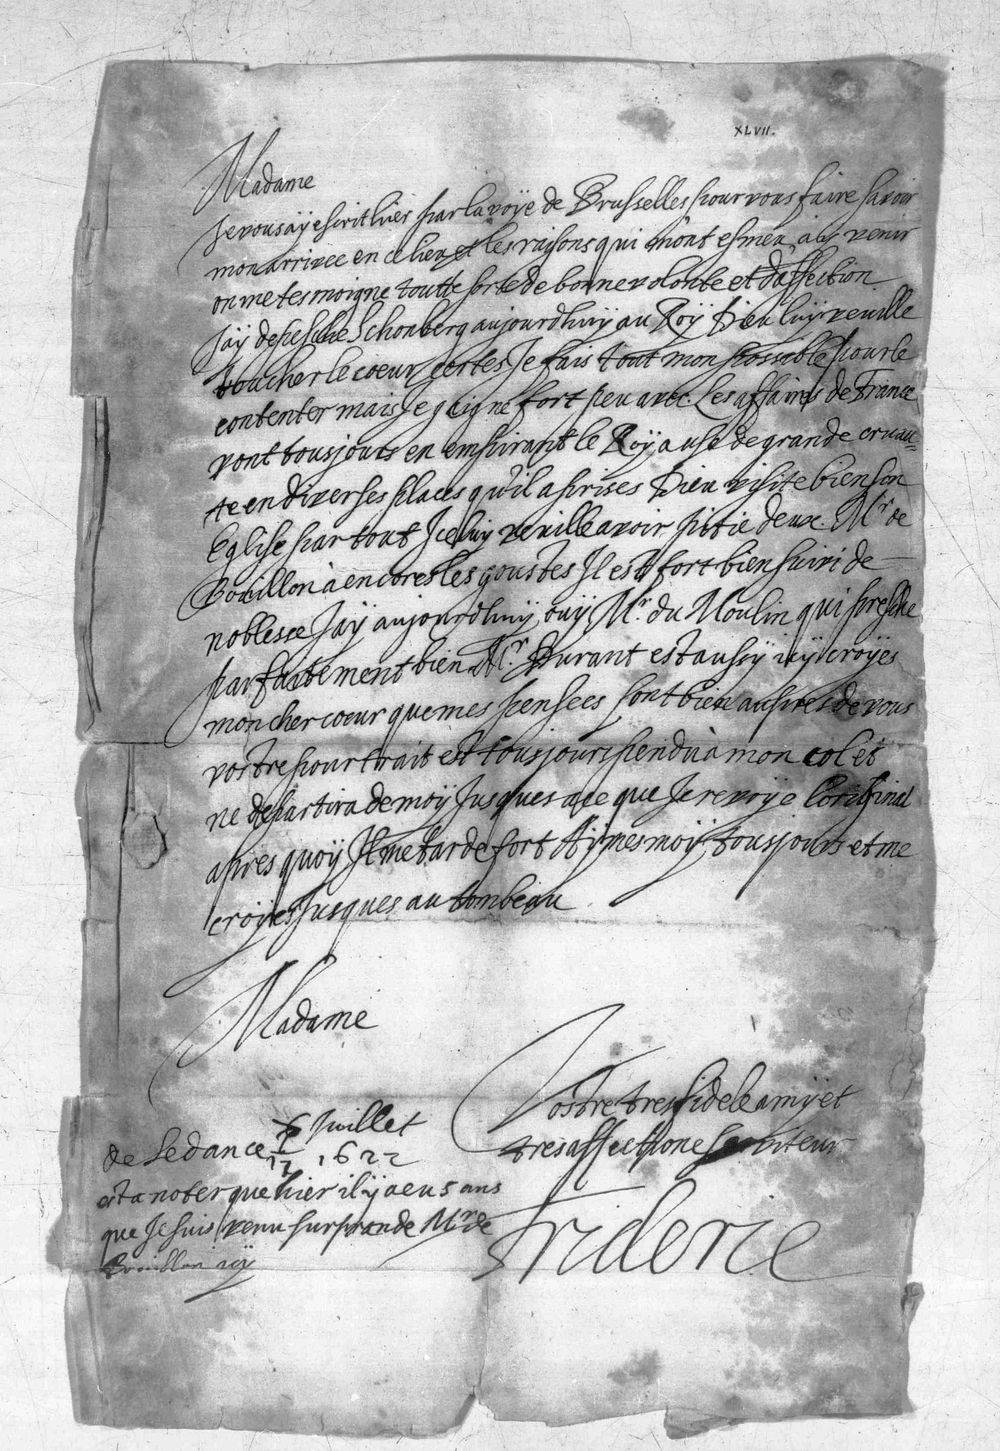 XLVII.
Madame
Je vous aÿ escrit hier par la voÿe de Brusselles pour vous faire savoir
mon arrivee en ce lieu et les raisons qui m'ont esmeu a ÿ venir
on me tesmoigne toutte sorte de bonne volonte et d'affection
J'aÿ depesche Schonberg aujourdhuÿ au Roÿ Dieu luÿ veuille
toucher le coeur certes Je fais tout mon possible pour le
contenter mais Je gaigne fort peu avec. Les affaires de France
vont tousjours en empirant le Roÿ a usé de grande cruau=
te en diverses places qu'il a prises Dieu visite bien son
Eglise par tout Iceluy veuille avoir pitie d'eux. Mr de
Bouillon à encores les gouttes Il est fort bien suivi de
noblesse J'aÿ aujourdhuÿ ouÿ Mr. du Moulin qui presche
parfaitement bien Mr. Durant est aussÿ icÿ croÿes
mon cher coeur que mes pensees sont bien aupres de vous
vostre pourtrait est tousjours pendu à mon col et
ne departira de moÿ Jusques a ce que Je revoÿe l'original
apres quoÿ Il me tarde fort Aÿmes moÿ tousjours et me
croÿes Jusques au tombeau
Madame
Vostre tresfidele amÿ et
tresaffectione serviteur
Frideric
de Sedan ce Juillet
17 1622
est a noter que hier il ÿ a eu 5 ans
que Je suis venu surprande Mr de
Bouillon icÿ